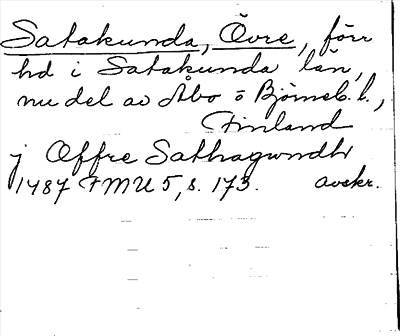 Satakunda, Övre, förr
hd i Satakunda län,
nu del av Åbo o Björneb. l.,
Finland
j Øffre Sathagwndh
1487 FMU 5, s. 173. avskr.